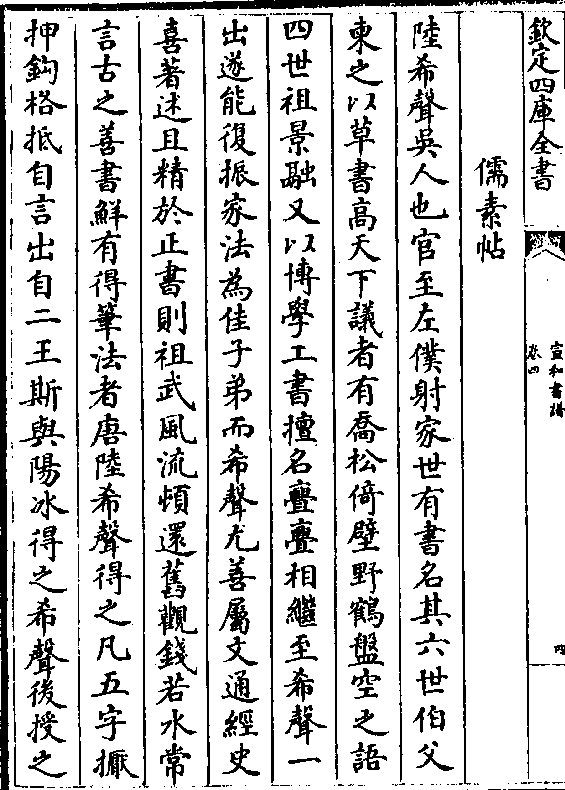 欽定四庫全書
宣和書譜
卷四
四
儒素帖
陸希聲吳人也官至左僕射家世有書名其六世伯父
東之以草書高天下議者有喬松倚壁野鶴盤空之語
四世祖景融又以博學工書擅名亹亹相繼至希聲一
出遂能復振家法為佳子弟而希聲尤善屬文通經史
喜著述且精於正書則祖武風流頓還舊觀錢若水常
言古之善書鮮有得筆法者唐陸希聲得之凡五字擫
押鈎格抵自言出自二王斯與陽冰得之希聲後授之